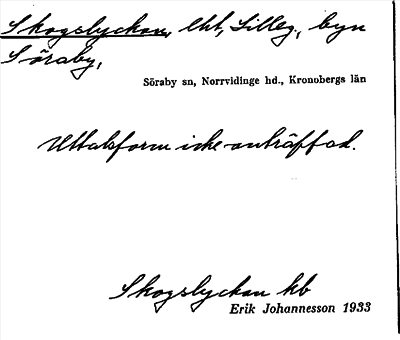 Skogslyckan, lht, Lilleg., byn
Söraby,
Söraby sn, Norrvidinge hd., Kronobergs län
Uttalsform icke anträffad.
Skogslyckan hb
Erik Johannesson 1933